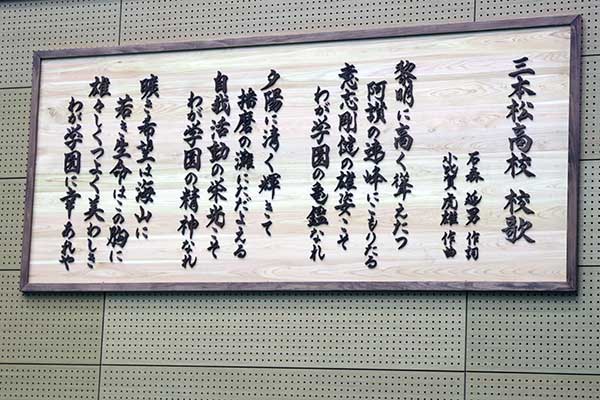 三本松高校 校歌
石森 延男 作詞
虎雄 作曲
黎明に高く聳えたつ
阿讃の連峰にこもりたる
意志剛健の雄姿こそ
わが学園の亀鑑なれ
夕陽に清く輝きて
播磨の灘にただよえる
自我活動の栄光こそ
わが学園の精神なれ
曠き希望は海山に
若き生命はこの胸に
雄々しくつよく美わしき
わが学園に幸あれや